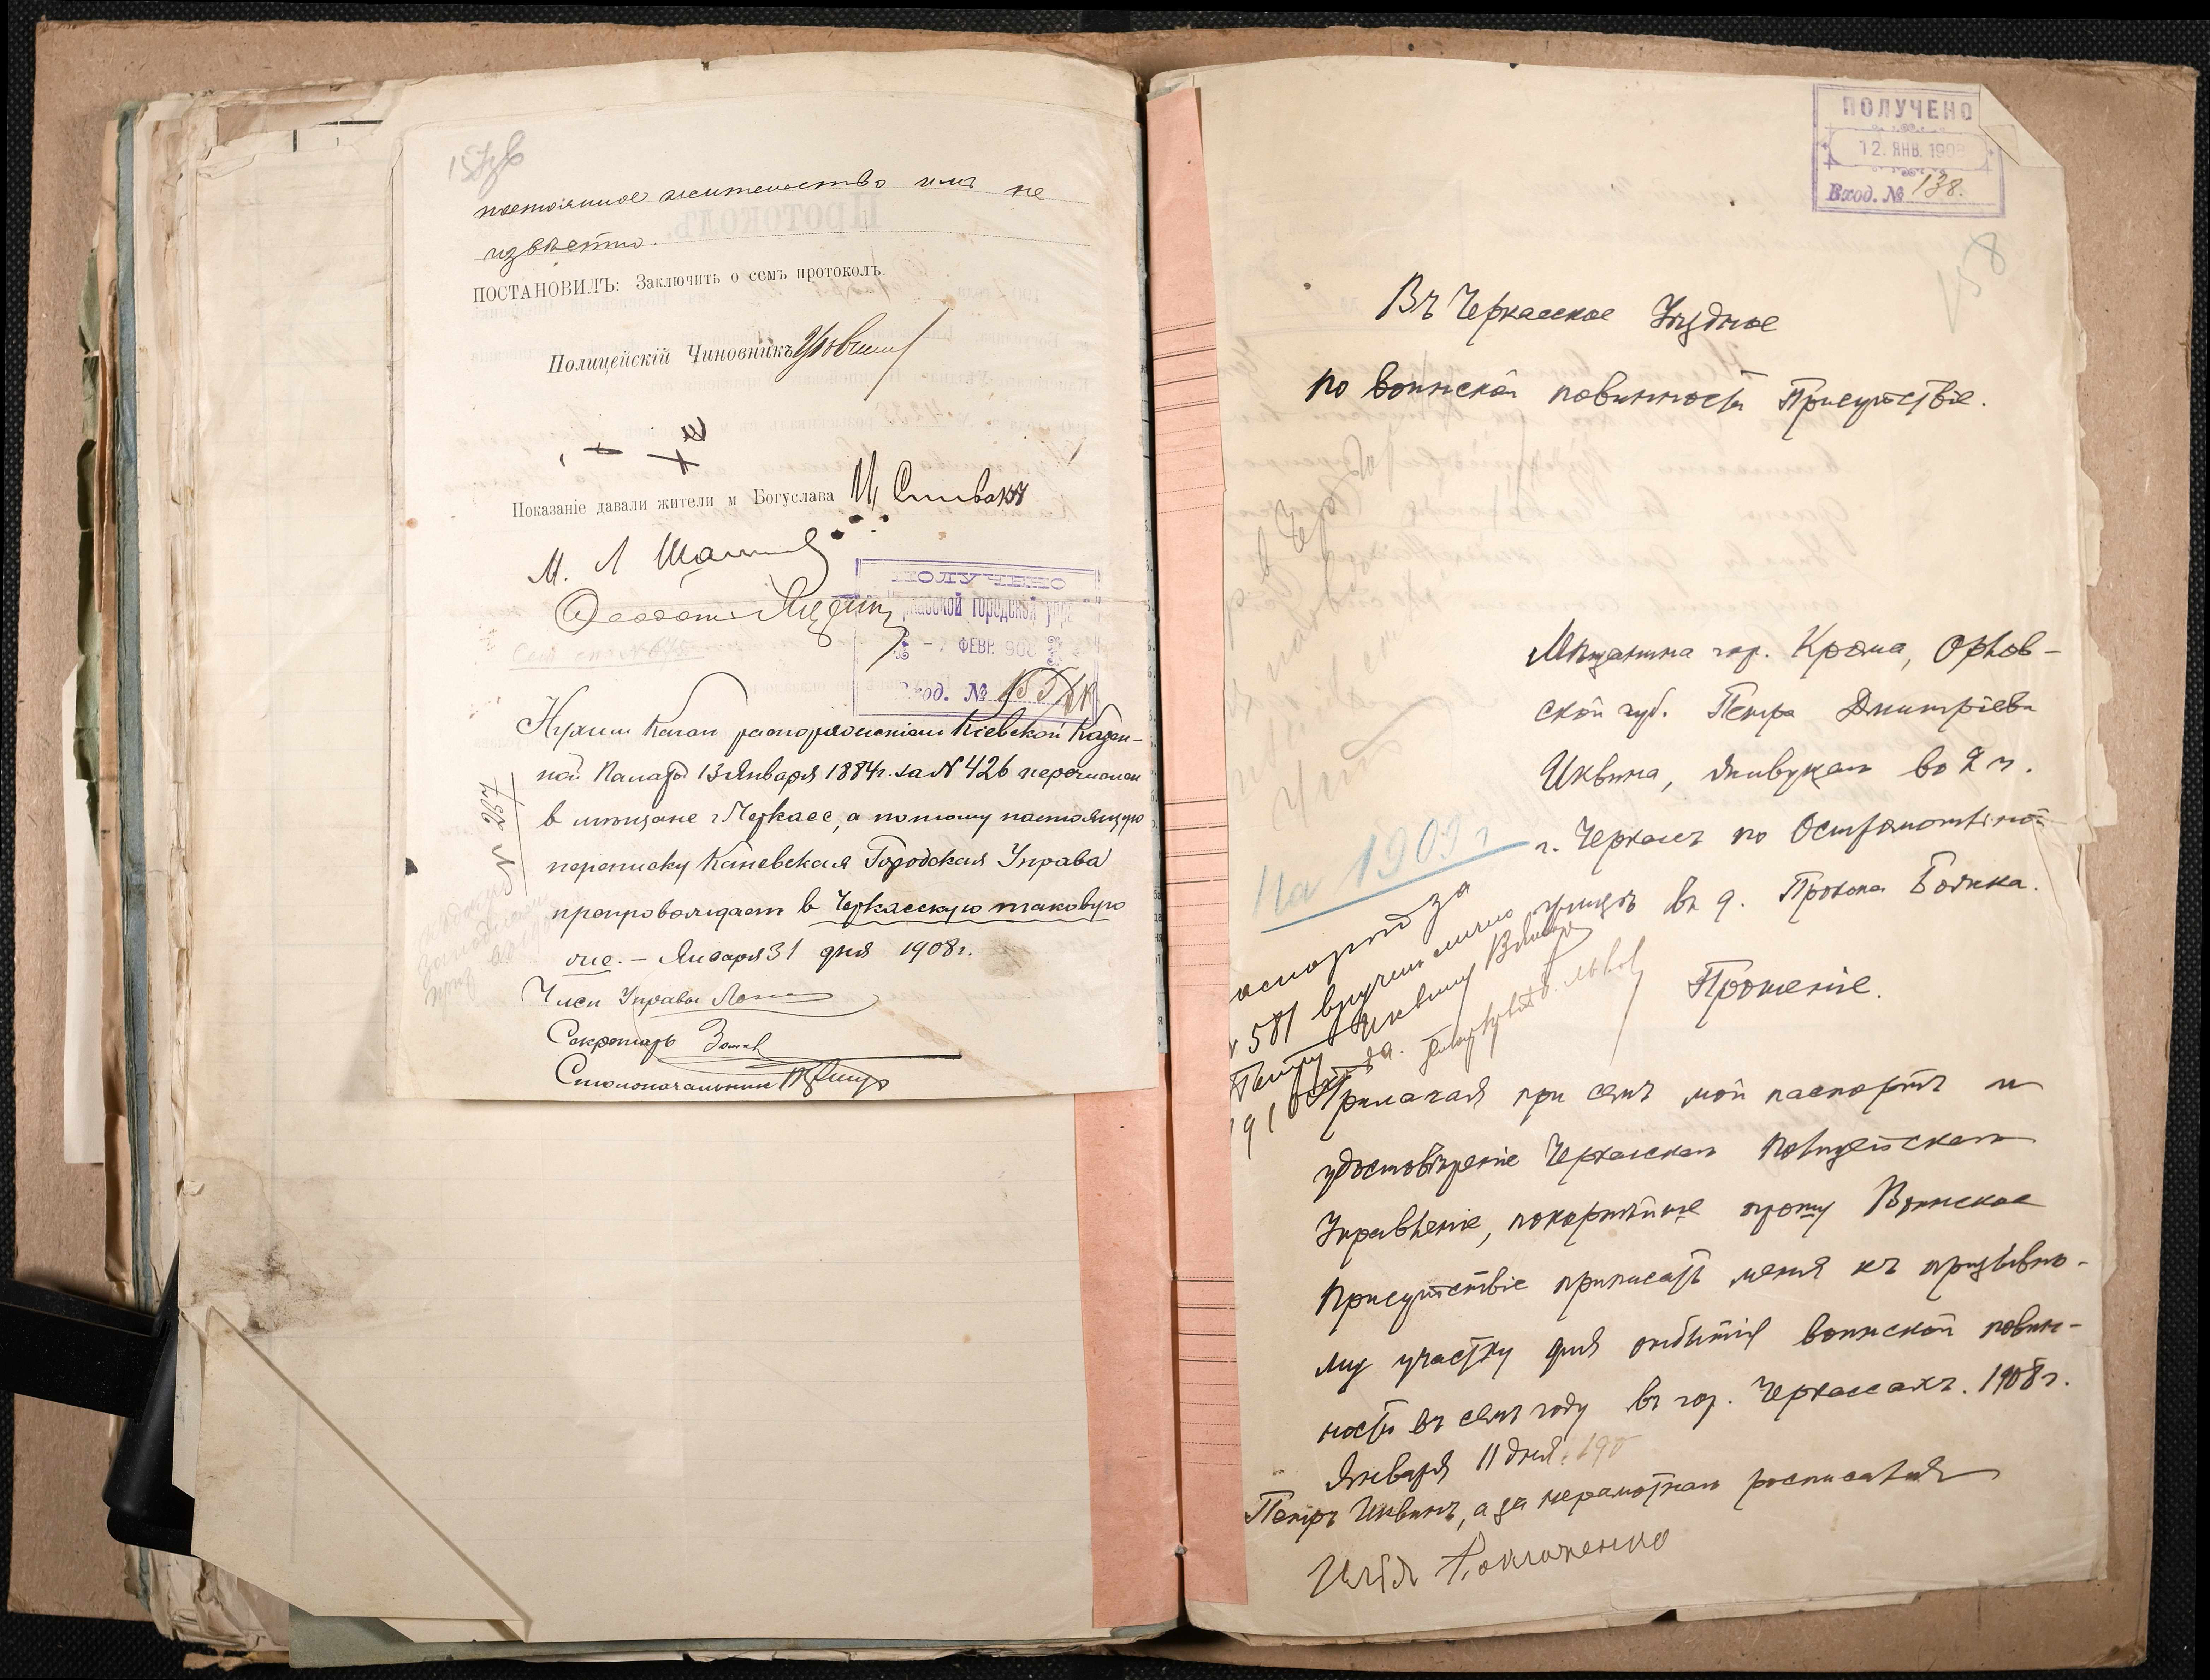 постоянное жительство имъ не
извѣстно.
ПОСТАНОВИЛЪ: Заключить о семъ протоколъ.
Полицейскій Чиновникъ
Показаніе давали жители м Богуслава И, Спивакъ
М. Л
ПОЛУЧЕНО
городской упр
ФЕВР. 908
Вход. №
Нухим Каган распоряжением Кіевской Казен-
ной Палаты 13 Января 1884г. за N 426 перечислен
в мѣщане г. Черкасс, а потому настоящую
переписку Каневская Городская Управа
препровождает в Черкасскую таковую
же. – Января 31 дня 1908г.
N 287
Член Управы
Секретарь
Столоначальник
ПОЛУЧЕНО
12. ЯНВ. 1908
Вход. № 138.
158
Въ Черкасское Уѣздное
по воинской повинности Присутствіе.
Мѣщанина гор. Крома, Орлов-
ской губ. Петра Дмитріева
Иквина, живущаго во 2 ч.
г. Черкассъ по
улицѣ въ д. Прокопа Бойка.
На 1909 г
Прошеніе.
N 581 вручено лично
Петру Иквину
Прилагая при семъ мой паспортъ и
удостовѣреніе Черкасскаго Полицейскаго
Управленія, покорнѣйше прошу Воинское
Присутствіе приписать меня къ призывно-
му участку для отбытія воинской повин-
ности въ семъ году въ гор. Черкассахъ. 1908 г.
Января 11 дня. 190
Петръ Иквинъ, а за неграмотнаго росписался
Илія